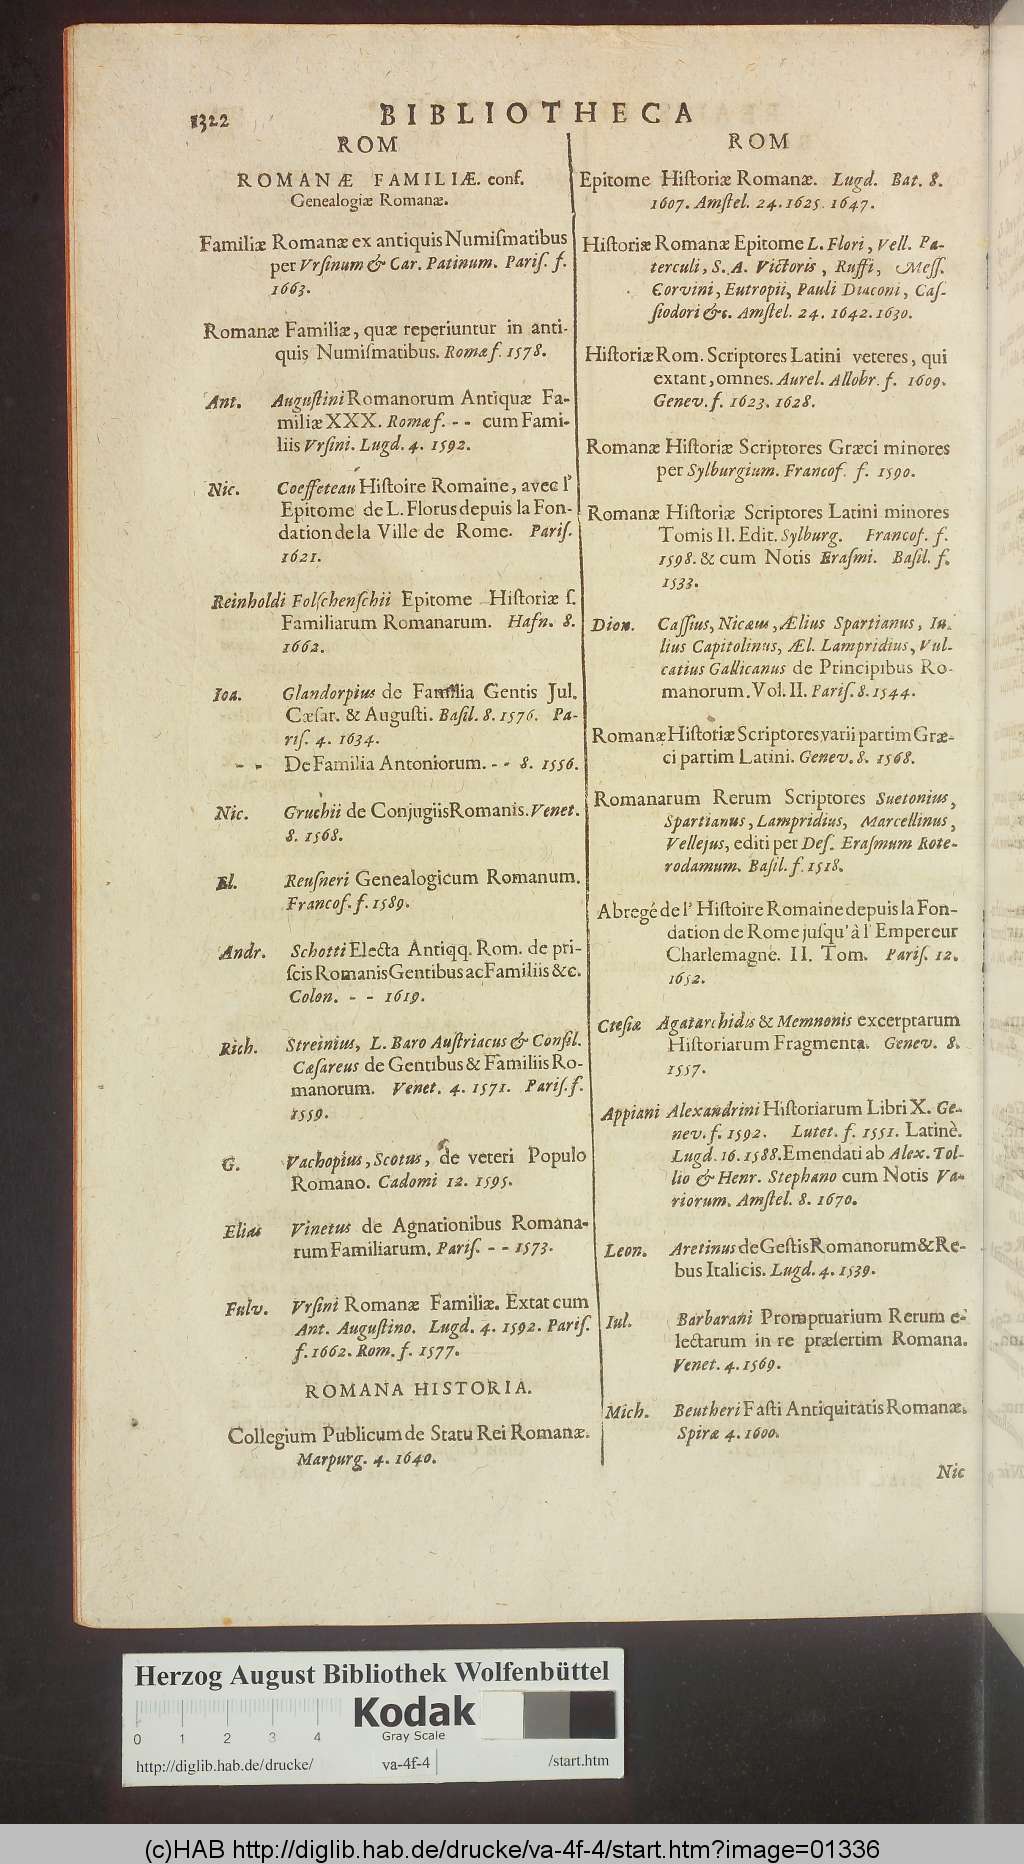 1322
BIBLIOTHECA
ROM
ROMANÆ FAMILIÆ. conf.
Genealogiæ Romanæ.
Familiæ Romanæ ex antiquis Numiſmatibus
per Vrſinum & Car. Patinum. Pariſ. f.
1663.
Romanæ Familiæ, quæ reperiuntur in anti-
quis Numiſmatibus. Romæ f. 1578.
Ant. Auguſtini Romanorum Antiquæ Fa-
miliæ XXX. Romæ f. - - cum Fami-
liis Vrſini. Lugd. 4. 1592.
Nic. Coeffeteau Hiſtoire Romaine, avec l'
Epitome de L. Florus depuis la Fon-
dation de la Ville de Rome. Pariſ.
1621.
Reinholdi Folſchenſchii Epitome Hiſtoriæ ſ.
Familiarum Romanarum. Hafn. 8.
1662.
Ioa. Glandorpius de Familia Gentis Jul.
Cæſar. & Auguſti. Baſil. 8. 1576. Pa-
riſ. 4. 1634.
- - De Familia Antoniorum. - - 8. 1556.
Nic. Gruchii de Conjugiis Romanis. Venet.
8. 1568.
El. Reuſneri Genealogicum Romanum.
Francof. f. 1589.
Andr. Schotti Electa Antiqq. Rom. de pri-
ſcis Romanis Gentibus ac Familiis &c.
Colon. - - 1619.
Rich. Streinius, L. Baro Auſtriacus & Conſil.
Cæſareus de Gentibus & Familiis Ro-
manorum. Venet. 4. 1571. Pariſ. f.
1559.
G. Vachopius, Scotus, de veteri Populo
Romano. Cadomi 12. 1595.
Elias Vinetus de Agnationibus Romana-
rum Familiarum. Pariſ. - - 1573.
Fulv. Vrſini Romanæ Familiæ. Extat cum
Ant. Auguſtino. Lugd. 4. 1592. Pariſ.
f. 1662. Rom. f. 1577.
ROMANA HISTORIA.
Collegium Publicum de Statu Rei Romanæ.
Marpurg. 4. 1640.
ROM
Epitome Hiſtoriæ Romanæ. Lugd. Bat. 8.
1607. Amſtel. 24. 1625. 1647.
Hiſtoriæ Romanæ Epitome L. Flori, Vell. Pa-
terculi, S. A. Victoris, Ruffi, Meſſ.
Corvini, Eutropii, Pauli Diaconi, Caſ-
ſiodori &c. Amſtel. 24. 1642. 1630.
Hiſtoriæ Rom. Scriptores Latini veteres, qui
extant, omnes. Aurel. Allobr. f. 1609.
Genev. f. 1623. 1628.
Romanæ Hiſtoriæ Scriptores Græci minores
per Sylburgium. Francof. f. 1590.
Romanæ Hiſtoriæ Scriptores Latini minores
Tomis II. Edit. Sylburg. Francof. f.
1598. & cum Notis Eraſmi. Baſil. f.
1533.
Dion. Caſſius, Nicæus, Ælius Spartianus, Iu-
lius Capitolinus, Æl. Lampridius, Vul-
catius Gallicanus de Principibus Ro-
manorum. Vol. II. Pariſ. 8. 1544.
Romanæ Hiſtoriæ Scriptores varii partim Græ-
ci partim Latini. Genev. 8. 1568.
Romanarum Rerum Scriptores Suetonius,
Spartianus, Lampridius, Marcellinus,
Vellejus, editi per Deſ. Eraſmum Rote-
rodamum. Baſil. f. 1518.
Abregé de l' Hiſtoire Romaine depuis la Fon-
dation de Rome juſqu' à l' Empereur
Charlemagne. II. Tom. Pariſ. 12.
1652.
Cteſiæ Agatarchidis & Memnonis excerptarum
Hiſtoriarum Fragmenta. Genev. 8.
1557.
Appiani Alexandrini Hiſtoriarum Libri X. Ge-
nev. f. 1592. Lutet. f. 1551. Latinè.
Lugd. 16. 1588. Emendati ab Alex. Tol-
lio & Henr. Stephano cum Notis Va-
riorum. Amſtel. 8. 1670.
Leon. Aretinus de Geſtis Romanorum & Re-
bus Italicis. Lugd. 4. 1539.
Iul. Barbarani Promptuarium Rerum e-
lectarum in re præſertim Romana.
Venet. 4. 1569.
Mich. Beutheri Faſti Antiquitatis Romanæ.
Spiræ 4. 1600.
Nic
Herzog August Bibliothek Wolfenbüttel
Kodak
Gray Scale
0 1 2 3 4
http://diglib.hab.de/drucke/ va-4f-4 /start.htm
(c)HAB http://diglib.hab.de/drucke/va-4f-4/start.htm?image=01336